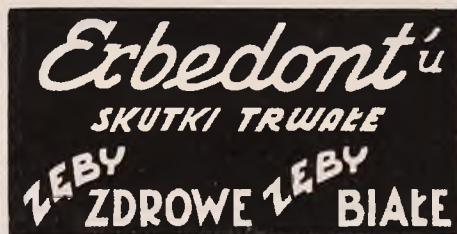 Erbedont'u
SKUTKI TRWAŁE
ZĘBY ZDROWE ZĘBY BIAŁE